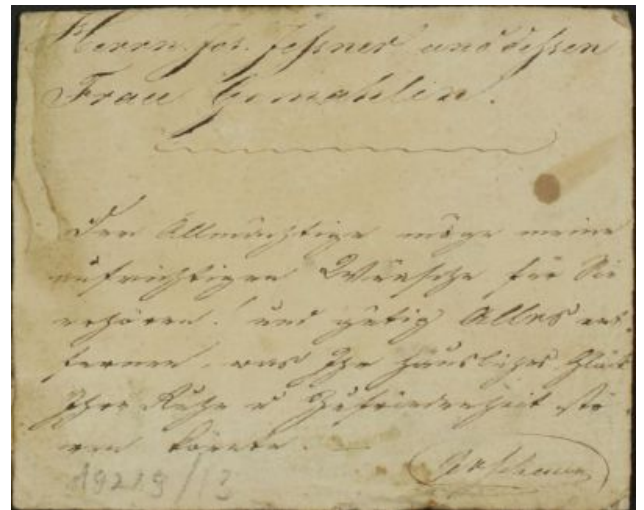 Herrn Jos. Jessner und dessen
Frau Gemahlin.
Der Allmächtige möge meine
aufrichtigen Wünsche für Sie
erhören! und gütig Alles ent-
fernen, was Ihr häusliches Glück
Ihre Ruhe u Zufriedenheit stö-
ren könnte. —
19219/13